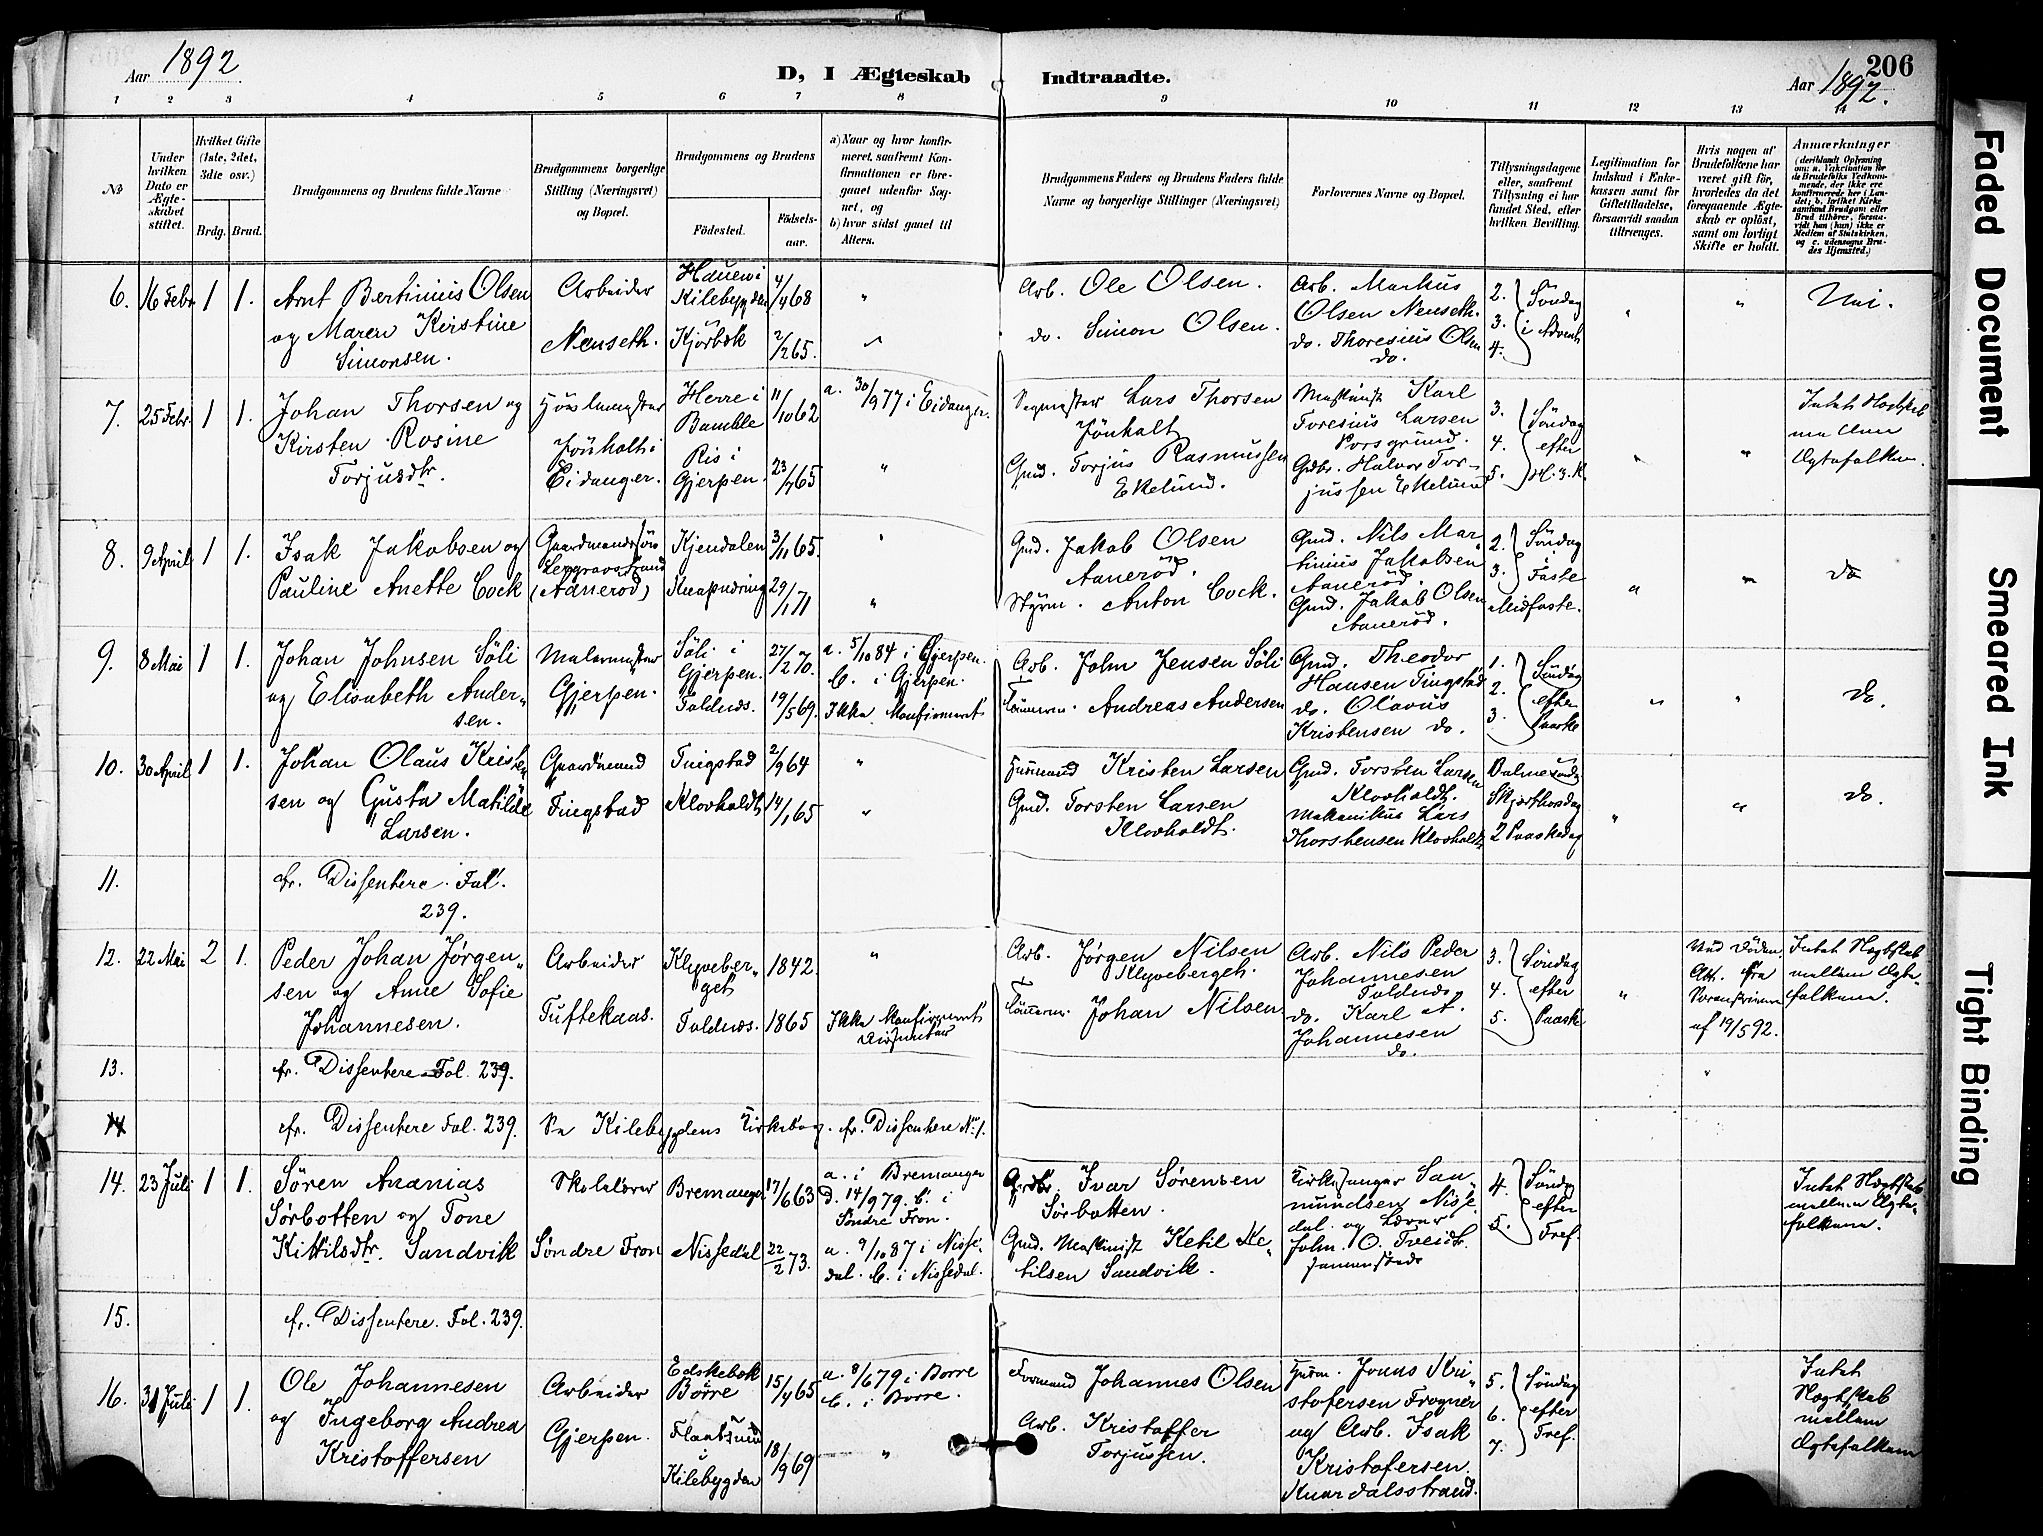 Aar 1892
D, I Ægteskab
Indtraadte.
206
Aar 1892.
1 2 3 4 5 6 7 8 9 10 11 12 13 14
№
Under hvilken Dato er Ægteskibet stiftet.
Hvilket Gifte (1ste, 2det, 3die osv.)
Brdg. Brud.
Brudgommens og Brudens fulde Navne
Brudgommens borgerlige Stilling (Næringsvei) og Bopæl.
Brudgommens og Brudens
Fødested.
Fødselsaar.
a) Naar og hvor konfirmeret, saafremt Konfirmationen er foregaaet udenfor Sognet, og
b) hvor sidst gaaet til Alters.
Brudgommens Faders og Brudens Faders fulde Navne og borgerlige Stillinger (Næringsvei)
Forlovernes Navne og Bopæl.
Tillysningsdagene eller, saafremt Tillysning ei har fundet Sted, efter hvilken Bevilling.
Legitimation for Indskud i Enkekassen samt for Giftetilladelse, forsaavidt saadan tiltrænges.
Hvis nogen af Brudefolkene har været gift før, hvorledes da det foregaaende Ægteskab er opløst, samt om lovligt Skifte er holdt.
Anmærkninger
6. 16 Febr 1 1.
Arnt Bertinius Olsen
og Maren Kirstine
Simonsen.
Arbeider
Neuseth.
Kilebygden 4/4 68
Kjørbæk 2/2 65.
Arb. Ole Olsen.
do. Simon Olsen.
Arb. Markus
Olsen Neuseth.
do. Thoresius Olsen
do.
2. 3. 4. Søndag i Advent
7. 25 Febr. 1 1.
Johan Thorsen og
Kirsten Rosine
Torjusdtr.
Jönholt i
Eidanger.
Herre i
Bamble 11/10 62
Ris i
Gjerpen. 23/4 65
a. 30/9 77 i Eidanger.
Lars Thorsen
Jönholt
Gmd. Torjus Rasmussen
Ekelund.
Maskinist Karl
Toresius Larsen
Porsgrund.
Gdbr. Halvor Torjussen Ekelund
3. 4. 5. Søndag efter H. 3. K.
8. 9 April 1 1.
Isak Jakobsen og
Pauline Anette Cock
Gaardmandssøn
(Aanerød)
Kjendalen 3/11 65.
29/1 71
Gmd. Jakob Olsen
Aanerød.
Styrm. Anton Cock.
Gmd. Nils Martinius Jakobsen
Aanerød.
Gmd. Jakob Olsen
Aanerød.
2. 3. Søndag i Faste
Midfaste.
do
9. 8 Mai 1 1.
Johan Johnsen Söli
og Elisabeth Andersen.
Malermester
Gjerpen.
Söli i
Gjerpen. 27/2 70.
Foldnes. 19/5 69.
a. 5/10 84 i Gjerpen.
b. i Gjerpen.
Ikke Konfirmeret
Arb. John Jensen Söli
Tømmerm. Andreas Andersen
Gmd. Theodor
Hansen Tingstad
do. Olavus
Kristensen do.
1. 2. 3. Søndag efter Paaske
do.
10. 30 April 1 1.
Johan Olaus Kristensen og Gusta Matilde
Larsen.
Gaardmand
Tingstad
Tingstad 2/9 64
Klovholdt 14/1 65
Husmand Kristen Larsen
Gmd. Torsten Larsen
Klovholdt.
Gmd. Torsten Larsen
Klovholdt.
Mekanikus Lars
Thorstensen Klovholdt
Palmesøndag
Skjærthorsdag
2 Paaskedag
do.
11.
cfr. Dissentere. Fol.
239.
12. 22 Mai 2 1.
Peder Johan Jørgensen og Anne Sofie
Johannesen.
Arbeider
Tuftekaas.
Klyveberget 1842.
Foldnes. 1865
Ikke Konfirmeret
Dissenter
Arb. Jørgen Nilsen
Klyveberget.
Tømmerm. Johan Nilsen
Arb. Nils Peder
Johannesen
Foldnes.
do. Karl A.
Johannesen
do.
3. 4. 5. Søndag efter Paaske
Ved Døden.
Att. fra
af 19/5 92.
Intet Slægtskab
mellem Ægtefolkene.
13.
cfr. Dissentere Fol. 239.
cfr. Dissentere Fol. 239. Se Kilebygdens Kirkebog. cfr. Dissentere № 1.
14. 23 Juli 1 1.
Søren Ananias
Sørbotten og Tone
Kittilsdtr. Sandvik
Skolelærer
Søndre Fron
Bremanger 17/6 63
Nissedal 22/2 73.
a. i Bremanger
d. 14/9 79. b. i
Søndre Fron.
a. 9/10 87 i Nissedal. b. i Nissedal.
Grdbr. Ivar Sørensen
Sørbotten.
Gmd. Maskinist Ketil Ketilsen Sandvik.
Kirkesanger Sanmundsen Nissedal. og Lærer
John. O. Tveidt.
4. 5. Søndag efter Tref.
Intet Slægtskab
mellem Ægtefolkene.
15.
cfr. Dissentere. Fol. 239.
16. 31 Juli 1 1.
Ole Johannesen
og Ingeborg Andrea
Kristoffersen
Arbeider
Gjerpen.
Børre 15/4 65
i
Kilebygden 18/9 69
a. 8/6 79 i Borre
b. i Borre.
Formand Johannes Olsen
Arb. Kristoffer
Torjussen.
Jonas Kristofersen Frogner
og Arb. Isak
Kristofersen.
Knardalsstrand.
5. 6. 7. Søndag efter Tref.
Intet
Slægtskab
mellem
Ægtefolkene
Faded Document
Smeared Ink
Tight Binding